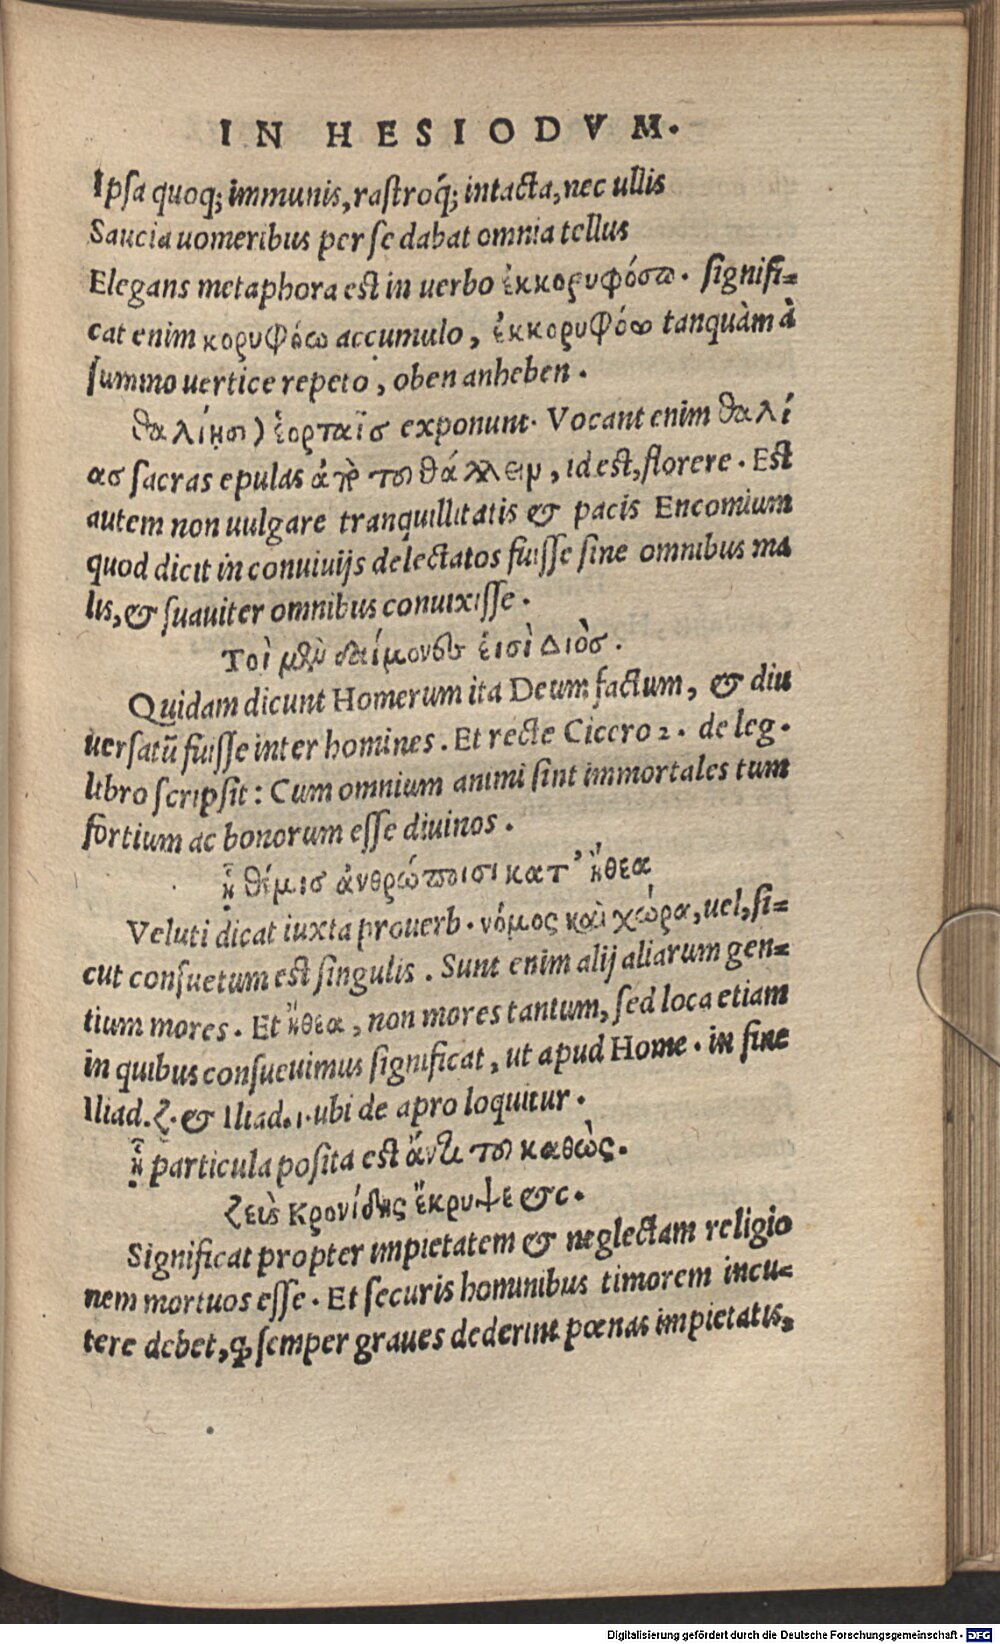 IN HESIODVM.
Ipsa quoq; immunis, rastroq́; intacta, nec ullis
Saucia uomeribus per se dabat omnia tellus
Elegans metaphora est in uerbo ἐκκορυφόσω. signifi=
cat enim κορυφόω accumulo, ἐκκορυφόω tanquàm à
summo uertice repeto, oben anheben.
θαλίῃσι) ἑορταῖσ exponunt. Vocant enim θαλί
ασ sacras epulas ἀπὸ τοῦ θάλλειν, id est, florere. Est
autem non uulgare tranquillitatis & pacis Encomium
quod dicit in conuiuijs delectatos fuisse sine omnibus ma
lis, & suauiter omnibus conuixisse.
Τοὶ μὲν δαίμονες ἐισὶ Διὸσ.
Quidam dicunt Homerum ita Deum factum, & diu
uersatũ fuisse inter homines. Et recte Cicero 2. de leg.
libro scripsit: Cum omnium animi sint immortales tum
fortium ac bonorum esse diuinos.
ᾗ θέμισ ἀνθρώποισι κατ' ἤθεα
Veluti dicat iuxta prouerb. νόμος καὶ χώρα, uel, si=
cut consuetum est singulis. Sunt enim alij aliarum gen=
tium mores. Et ἤθεα, non mores tantum, sed loca etiam
in quibus consueuimus significat, ut apud Home. in fine
Iliad. ζ. & Iliad. ι. ubi de apro loquitur.
ᾗ particula posita est ἀντὶ τοῦ καθὼς.
Ζεὺς Κρονίδης ἔκρυψε &c.
Significat propter impietatem & neglectam religio
nem mortuos esse. Et securis hominibus timorem incu=
tere debet, ꝙ semper graues dederint pœnas impietatis,
Digitalisierung gefördert durch die Deutsche Forschungsgemeinschaft - DFG